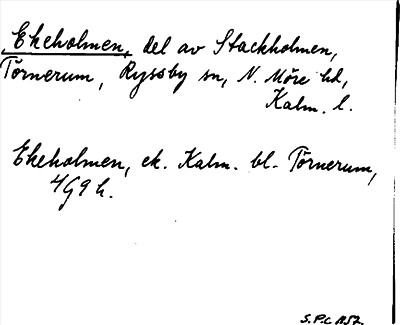 Ekeholmen, del av Stackholmen,
Törnerum, Ryssby sn, N. Möre hd,
Kalm. l.
Ekeholmen, ek. Kalm. bl. Törnerum,
4G9h.
S.P.C. 1952.